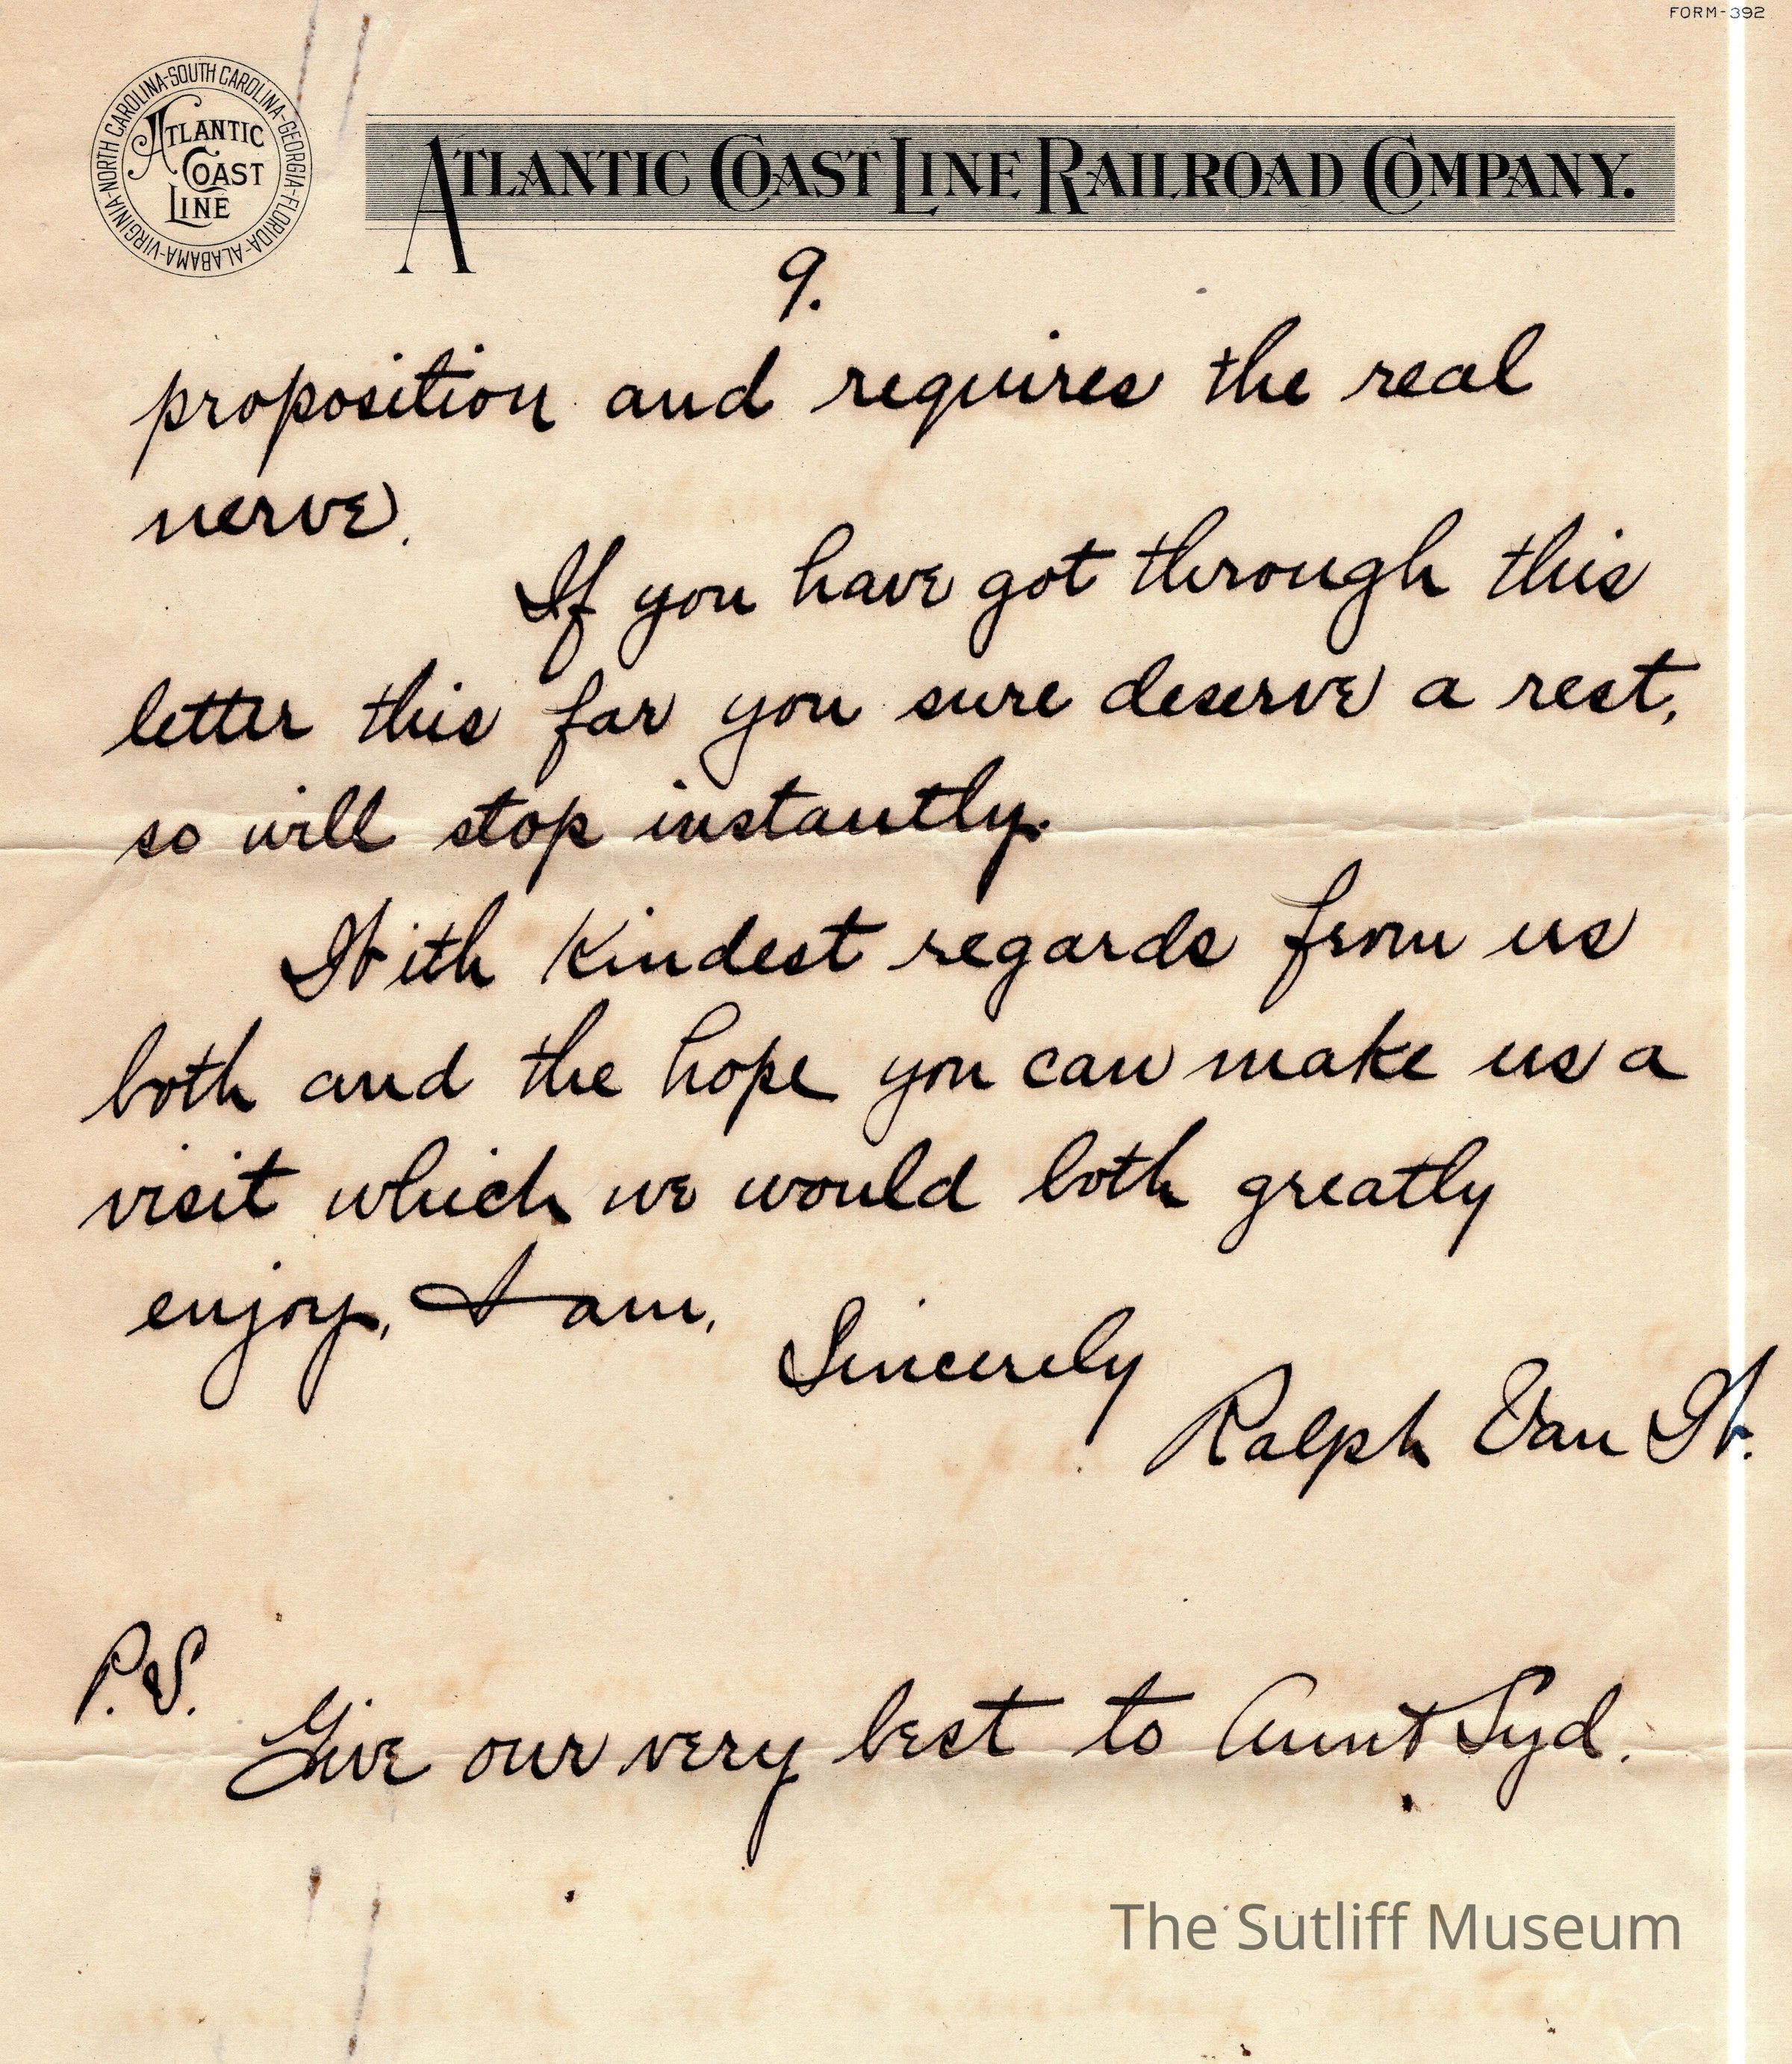 FORM-392
NORTH CAROLINA-SOUTH CAROLINA-GEORGIA-FLORIDA-ALABAMA-VIRGINIA-
ATLANTIC
COAST
LINE
ATLANTIC COAST LINE RAILROAD COMPANY.
9.
proposition and requires the real
nerve.
If you have got through this
letter this far you sure deserve a rest,
so will stop instantly.
With kindest regards from us
both and the hope you can make us a
visit which we would both greatly
enjoy, I am,
Sincerely
Ralph Van W.
P.S.
Give our very best to Aunt Syd.
The Sutliff Museum